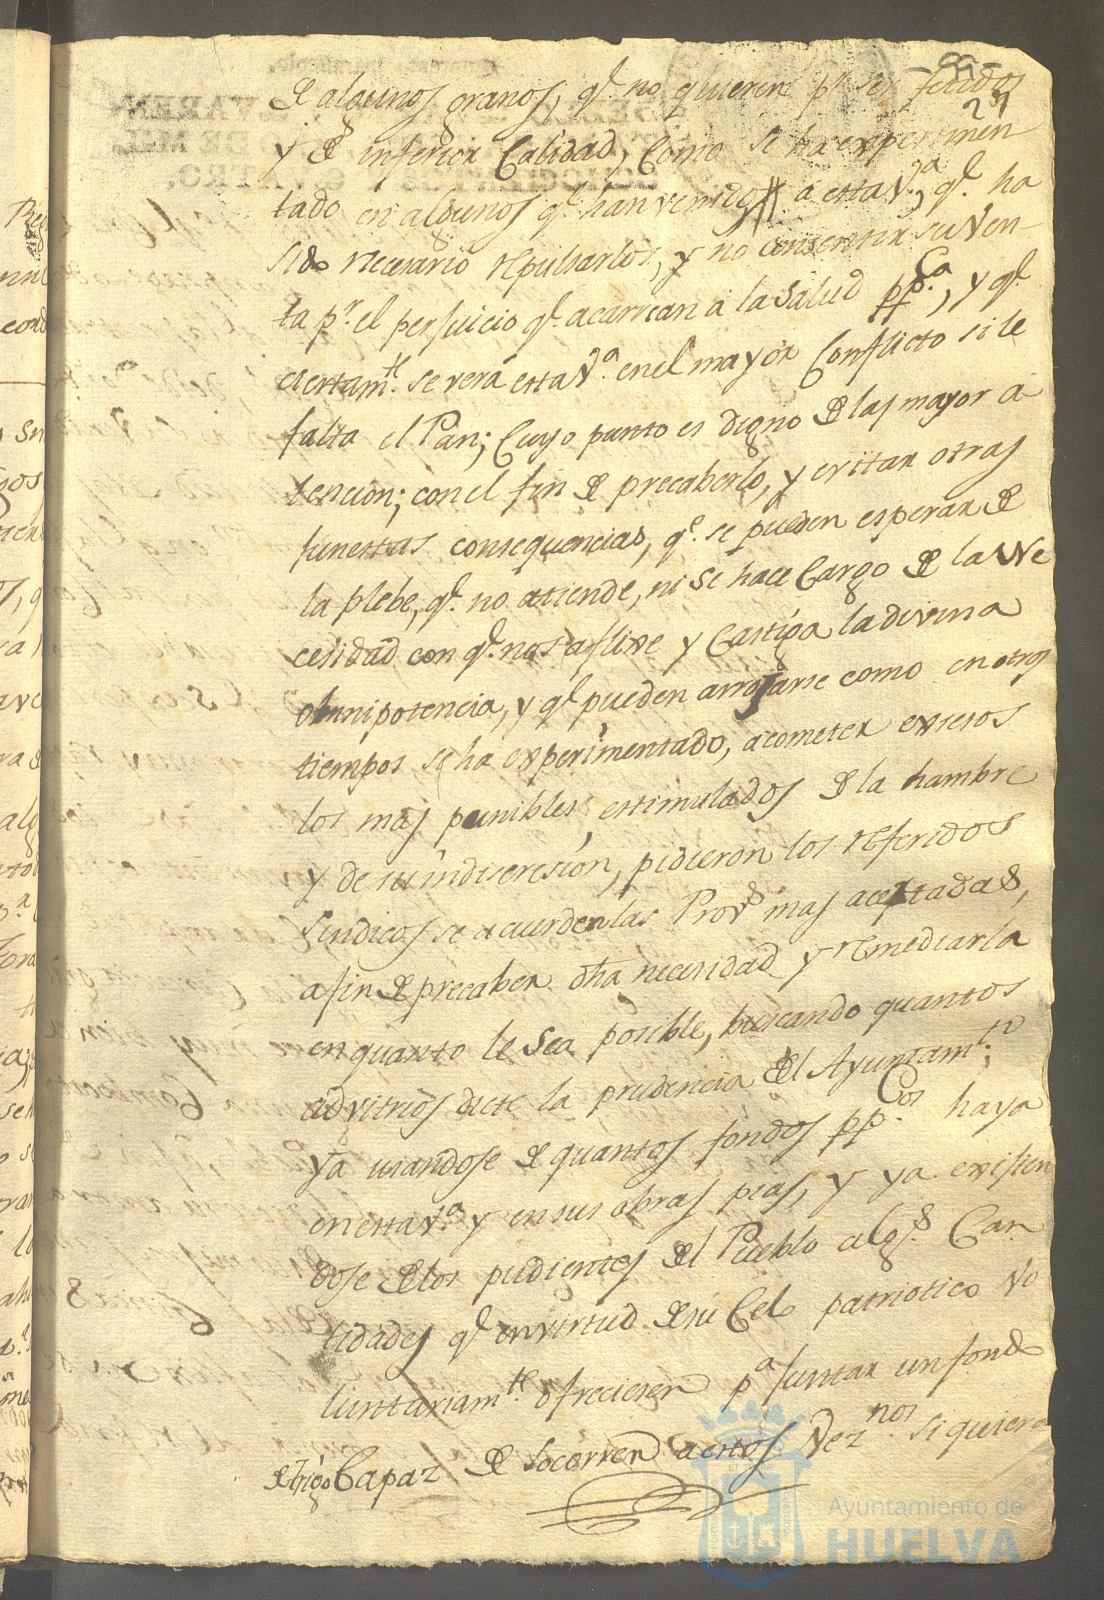 de algunos granos, qe. no quieren pr. ser fetidos
y de inferior Calidad, Como se ha experimen
tado en algunos qe. han venido a esta Va., qe. ha
sido necesario repulsarlos, y no consentir su Ven-
ta pr. el perjuicio qe. acarrean a la Salud ppca., y qe.
ciertamte. se verá esta Va. en el mayor Conflicto si le
falta el Pan; Cuyo punto es digno de las mayor a
tencion; con el fin de precaberlo, y evitar otras
funestas consequencias, qe. se pueden esperar de
la plebe, qe. no atiende, ni se hace Cargo de la Ne
cesidad con qe. nos aflixe y Castiga la divina
omnipotencia, y qe. pueden arrojarse como en otros
tiempos se ha experimentado, acometer excesos
los mas punibles, estimulados de la hambre
y de su indiscresion, pidieron los referidos
Sindicos se acuerden las Provs. mas acertadas,
a fin de precaber dha necesidad y remediarla
en quanto le sea posible, buscando quantos
advitrios dicte la prudencia del Ayuntamto.;
ya usandose de quantos fondos ppcos. haya
en esta Va. y en sus obras pias, y ya exisien
dose de los pudientes del Pueblo algs. Can-
tidades qe. en virtud de su Celo patriotico vo
luntariamte. ofrecieren pa. juntar un fondo
de trigo Capaz de socorrer a estos Veznos. siquiera
Ayuntamiento de
HUELVA